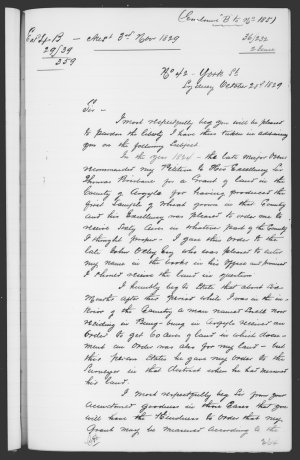 (Enclosure B to No 185)
Col Sec B - Aust 3rd Nov 1829
36/332
29/39
2 Encs
359
No 42 - York St
Sydney October 21st 1829
Sir -
I most respectfully beg you will be pleased
to pardon the liberty I have thus taken in addressing
you on the following subject
In the year 1824 - the late Major Ovens
recommended my Petition to His Excellency Sir
Thomas Brisbane for a Grant of land in the
County of Argyle for having produced the
first Sample of Wheat grown in that County
and his Excellency was pleased to order me to
receive Sixty Acres in whatever part of the County
I thought proper - I gave this order to the
late John Oxley Esq who was pleased to enter
my name in the books in his Office and promised
I should receive the land in question
I humbly beg to State that about six
Months after this period while I was in the in-
terior of the Country a man named
residing in Argyle received an
Order to get 60 acres of land in which docu-
ment an Order was also for my land - but
this person States he gave my order to the
Surveyor in that district when he had measured
his land.
I most respectfully beg Sir from your
accustomed goodness in these Cases that you
will have the kindness to order that my
Grant may be measured according to the